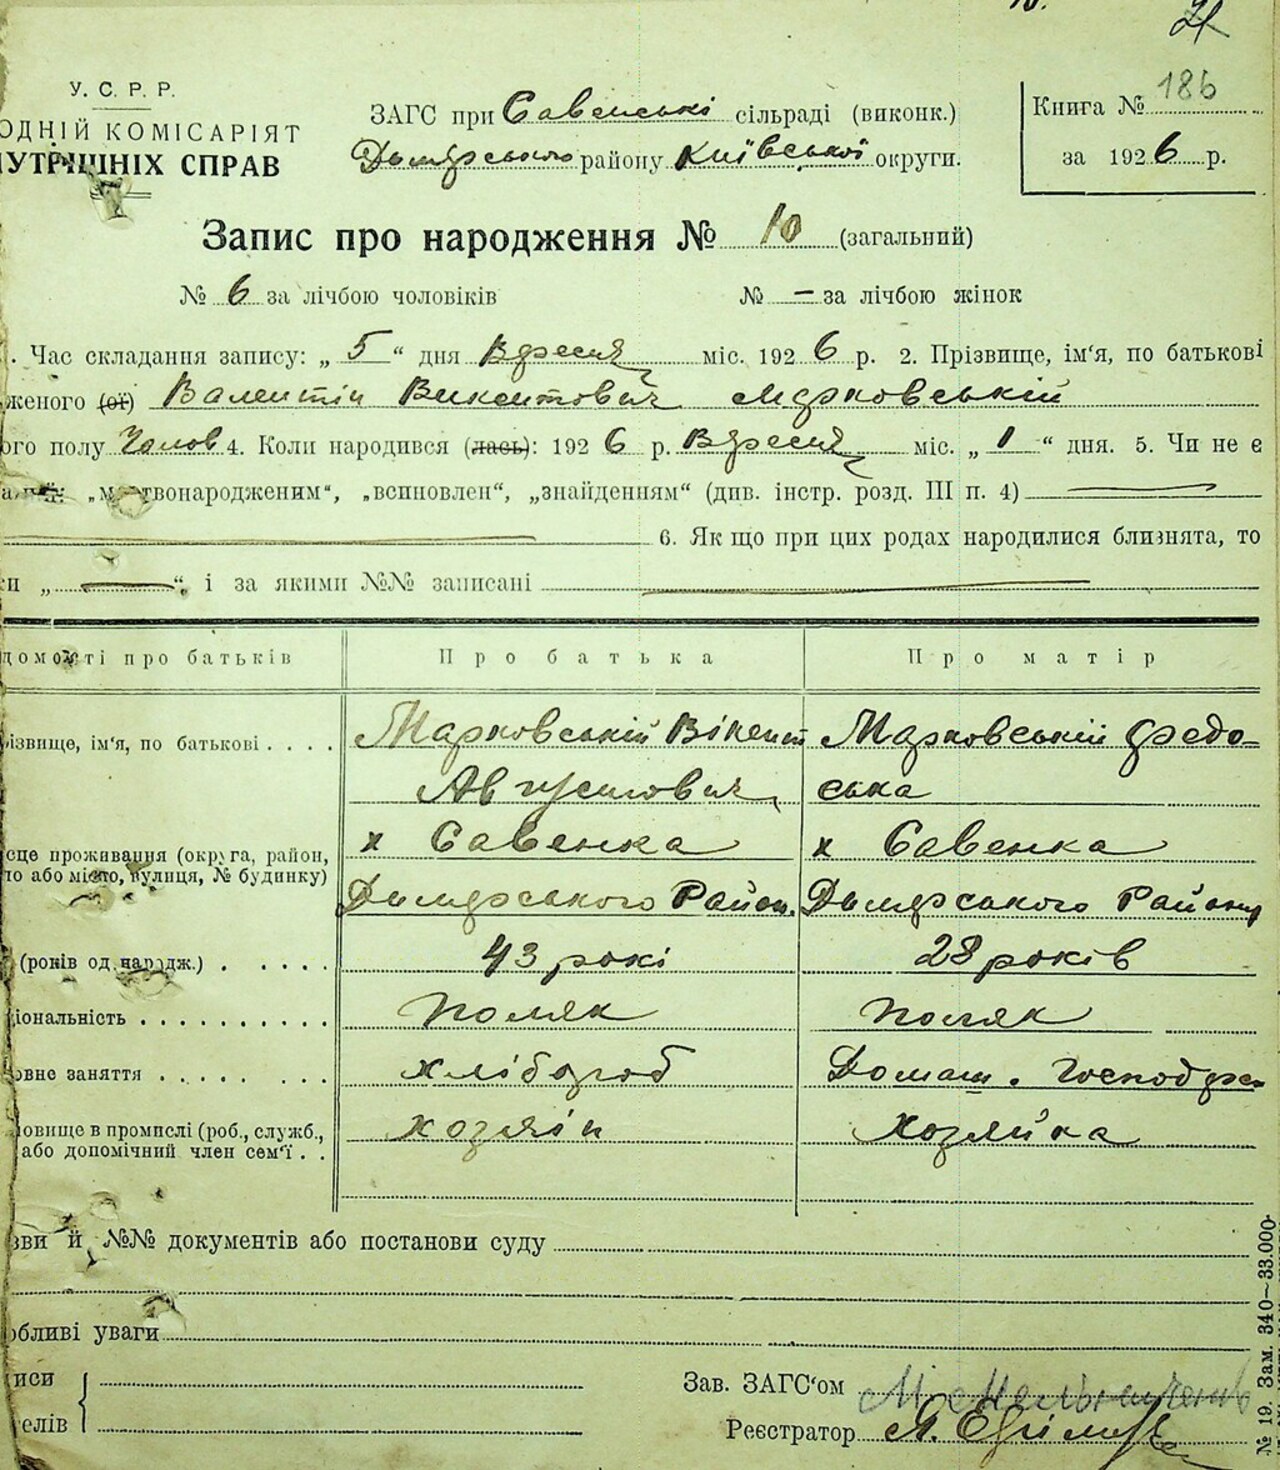 У. С. Р. Р.
ОДНІЙ КОМІСАРІЯТ
НУТРІШНІХ СПРАВ
ЗАГС при Савенські сільраді (виконк.)
Димерського району Київської округи.
Книга № 186
за 1926 р.
Запис про народження № 10 (загальний)
№ 6 за лічбою чоловіків № — за лічбою жінок
. Час складання запису: „ 5 “ дня Вресня міс. 1926 р. 2. Прізвище, ім‘я, по батькові
женого (ої) Валентін Викентович Марковській
ого полу Чолов 4. Коли народився (лась): 1926 р. Вресня міс. „ 1 “ дня. 5. Чи не є
„мертвонародженим“, „всиновлен“, „знайденням“ (див. інстр. розд. III п. 4)
6. Як що при цих родах народилися близнята, то
и „ — “, і за якими №№ записані
домості про батьків Про батька Про матір
різвище, ім‘я, по батькові . . . . Марковській Вікент Марковській Федо-
Августович ська
х Савенка х Савенка
сце проживання (округа, район,
ло або місто, вулиця, № будинку)
Димерського Район. Димерського Району
(років од народж.) . . . . . 43 рокі 28 років
ціональність . . . . . . . . . . Поляк Поляк
овне заняття . . . . . . . . хлібороб Домаш. Господар
новище в промислі (роб., служб., хозяін хозяйка
або допомічний член сем‘ї . .
зви й №№ документів або постанови суду
обливі уваги
иси
елів
Зав. ЗАГС‘ом
Реєстратор
№ 19. Зам. 340—33.000